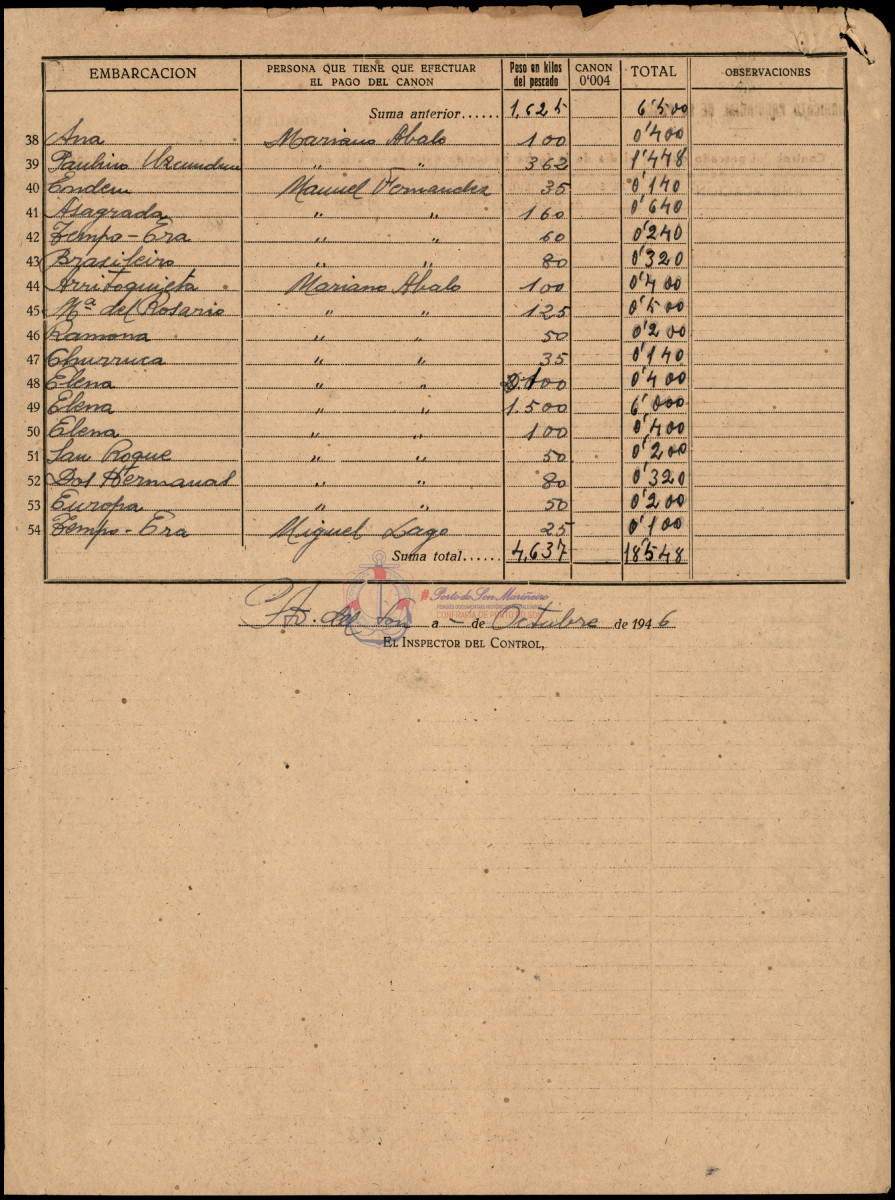 EMBARCACION PERSONA QUE TIENE QUE EFECTUAR EL PAGO DEL CANON Peso en kilos del pescado CANON 0'004 TOTAL OBSERVACIONES
Suma anterior...... 1.625 6'500
38 Ana Mariano Abalo 100 0'400
39 Paulino Uzcundun " " 362 1'448
40 Enden Manuel Fernandez 35 0'140
41 Asagrada " " 160 0'640
42 Tempo-Era " " 60 0'240
43 Brasileiro " " 80 0'320
44 Arritoquieta Mariano Abalo 100 0'400
45 Mª del Rosario " " 125 0'500
46 Ramona " " 50 0'200
47 Churruca " " 35 0'140
48 Elena " " 100 0'400
49 Elena " " 1.500 6'000
50 Elena " " 100 0'400
51 San Roque " " 50 0'200
52 Dos Hermanas " " 80 0'320
53 Europa " " 50 0'200
54 Tempo-Era Miguel Lago 25 0'100
Suma total...... 4,637 18'548
# Porto do Son Mariñeiro
CONFRARÍA DE PORTO DO SON
Pto. del Son a - de Octubre de 1946
EL INSPECTOR DEL CONTROL,